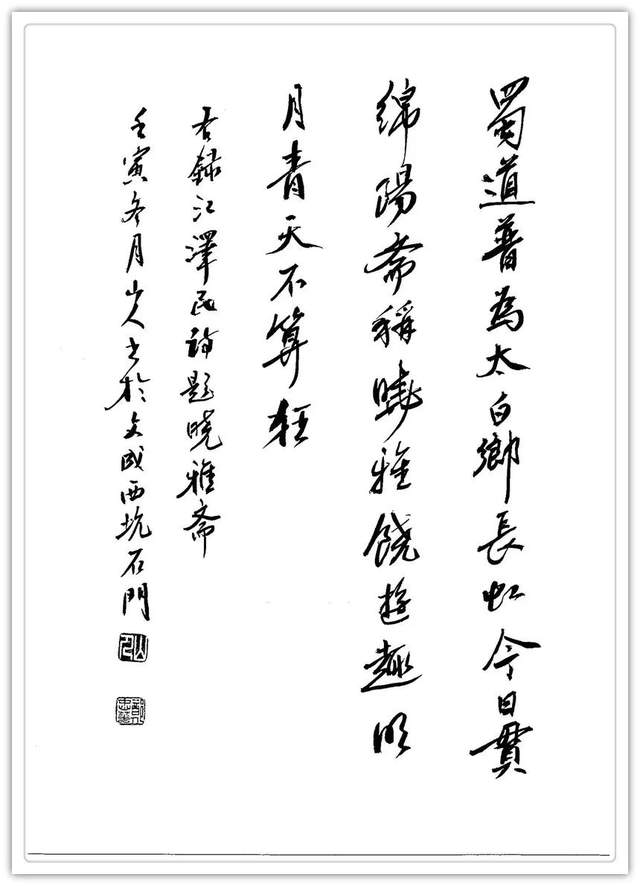 蜀道普為太白鄉長虹今日貫
綿陽斋稱曉雅饒遊趣明
月青天不算狂
右録江澤民詩題曉雅斋
壬寅冬月山人書於文成西坑石門